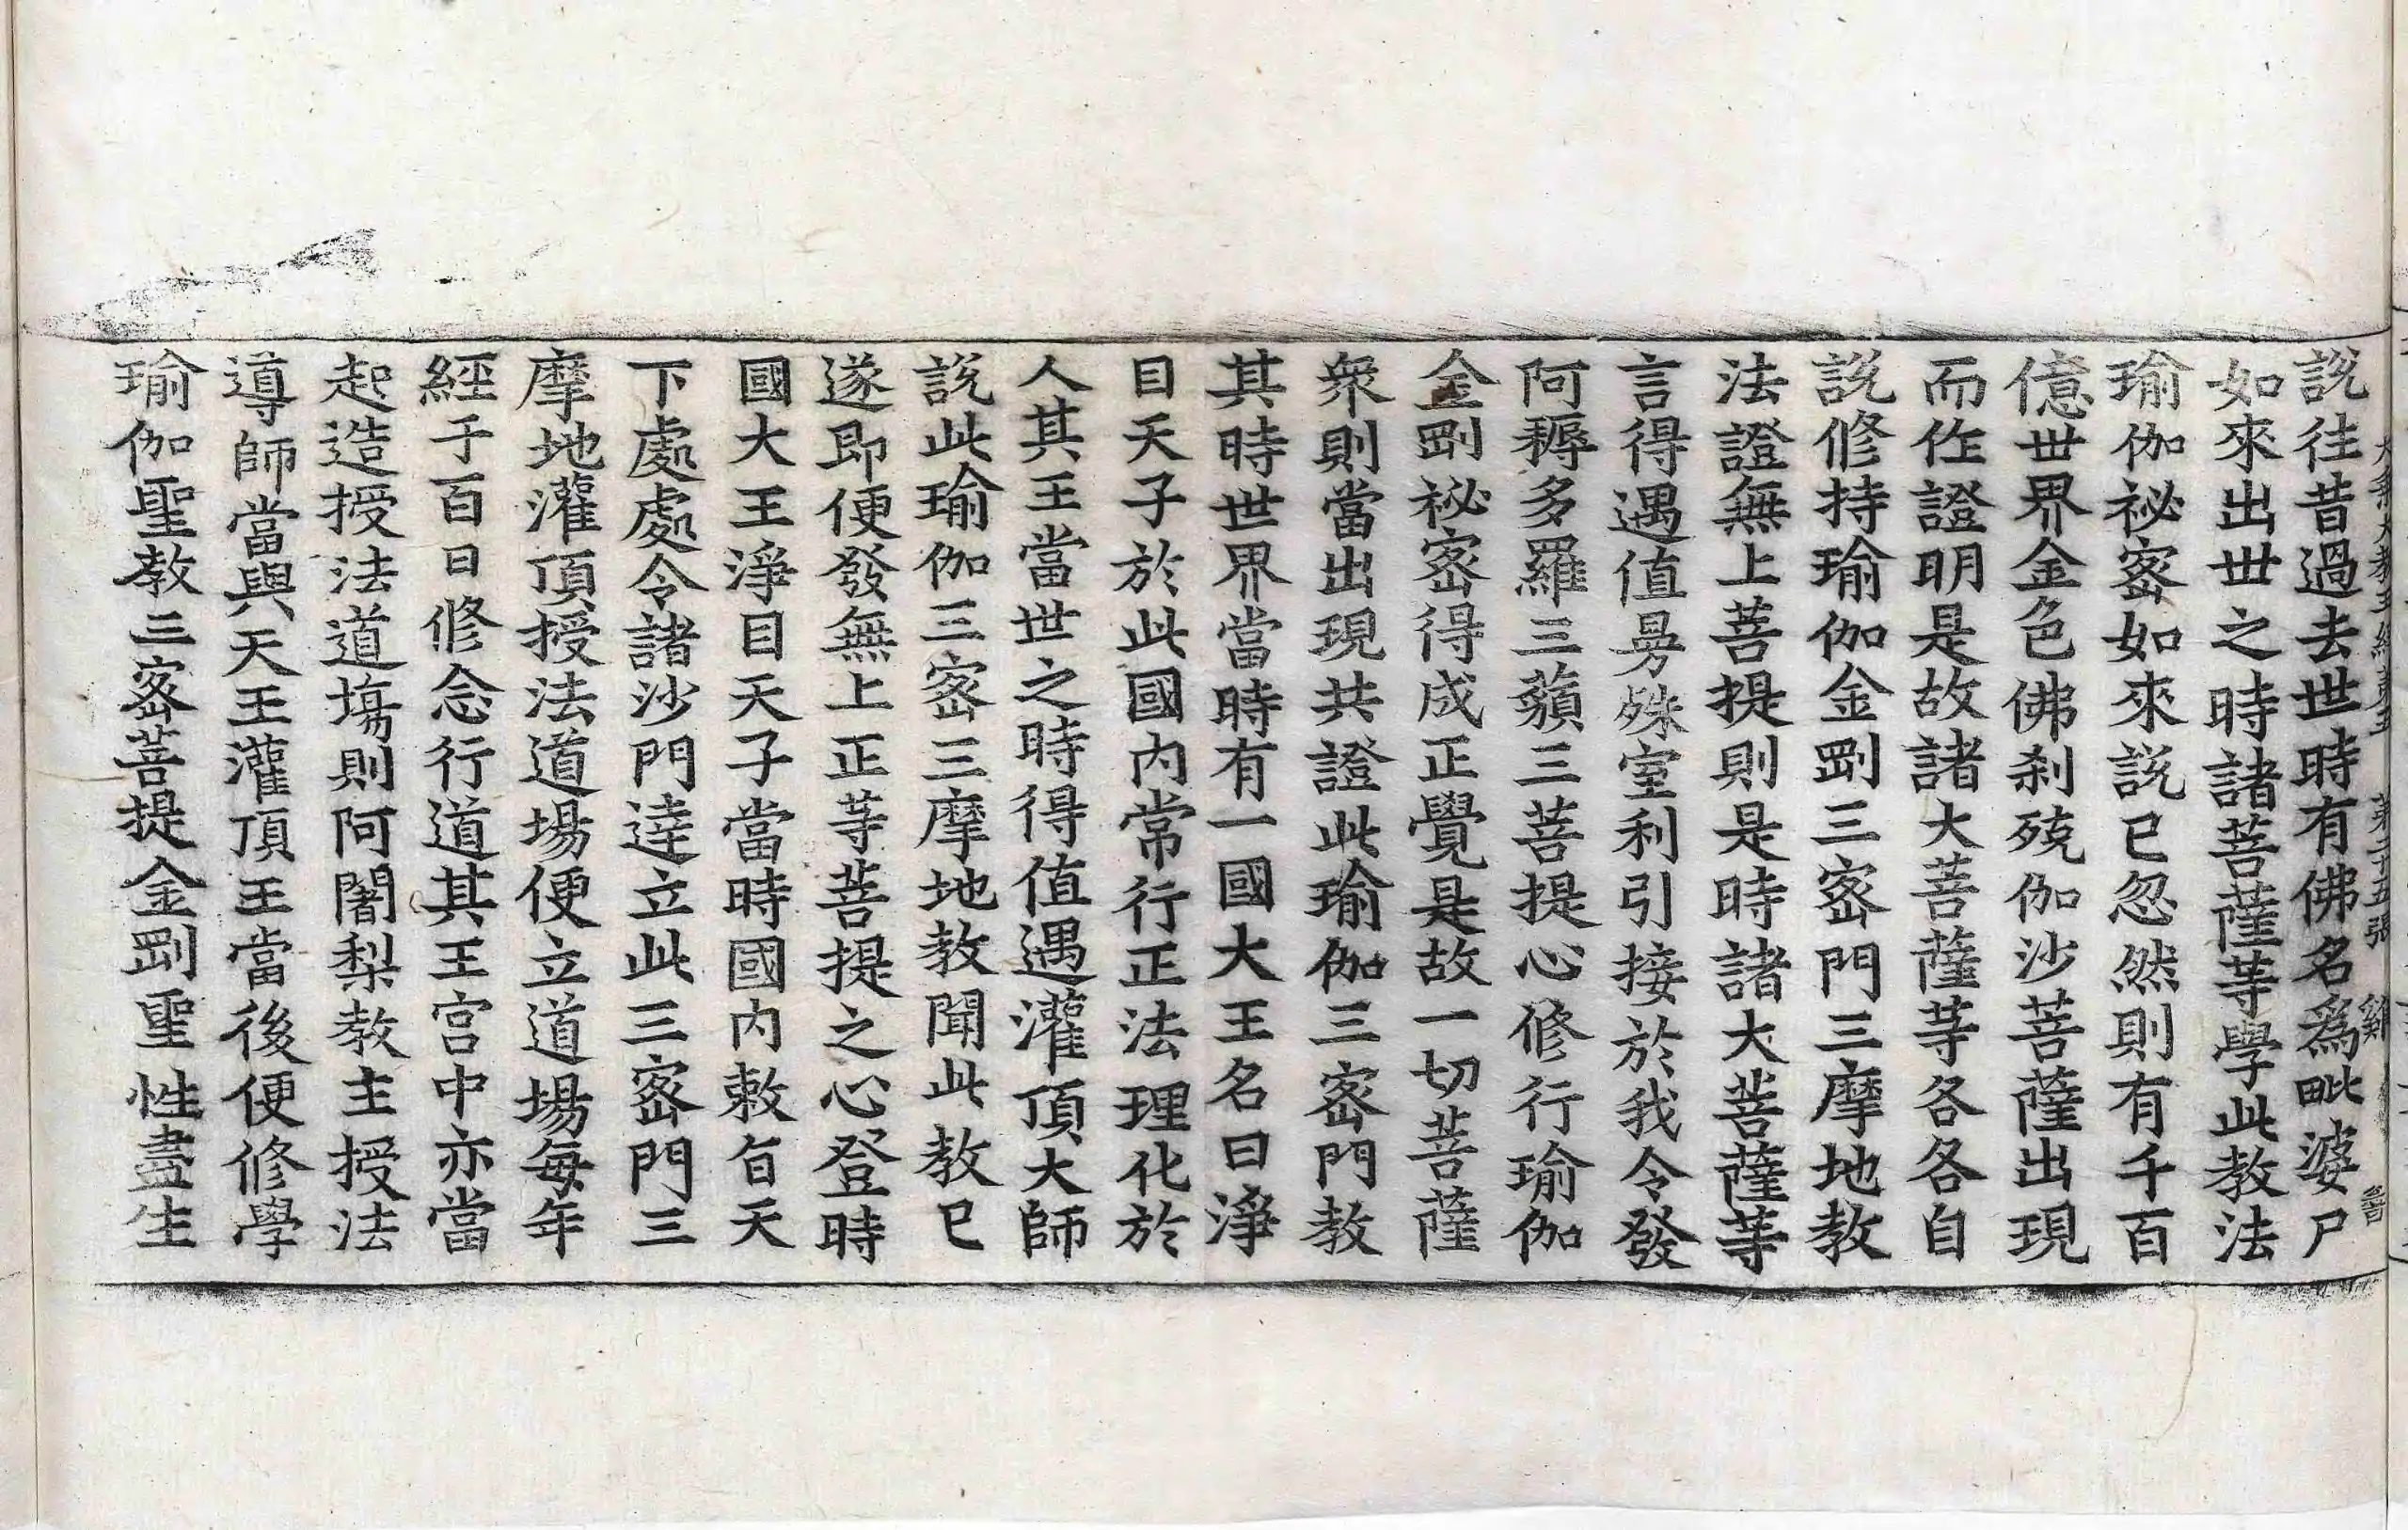 大乘大教王經卷五 第二十五張 雞
說往昔過去世時有佛名爲毗婆尸
如來出世之時諸菩薩等學此教法
瑜伽祕密如來說已忽然則有千百
億世界金色佛刹殑伽沙菩薩出現
而作證明是故諸大菩薩等各各自
說修持瑜伽金剛三密門三摩地教
法證無上菩提則是時諸大菩薩等
言得遇值曼殊室利引接於我令發
阿耨多羅三藐三菩提心修行瑜伽
金剛祕密得成正覺是故一切菩薩
衆則當出現共證此瑜伽三密門教
其時世界當時有一國大王名曰淨
目天子於此國內常行正法理化於
人其王當世之時得值遇灌頂大師
說此瑜伽三密三摩地教聞此教已
遂即便發無上正等菩提之心登時
國大王淨目天子當時國內敕旨天
下處處令諸沙門達立此三密門三
摩地灌頂授法道場便立道場每年
經于百日修念行道其王宮中亦當
起造授法道場則阿闍梨教主授法
導師當與天王灌頂王當後便修學
瑜伽聖教三密菩提金剛聖性盡生